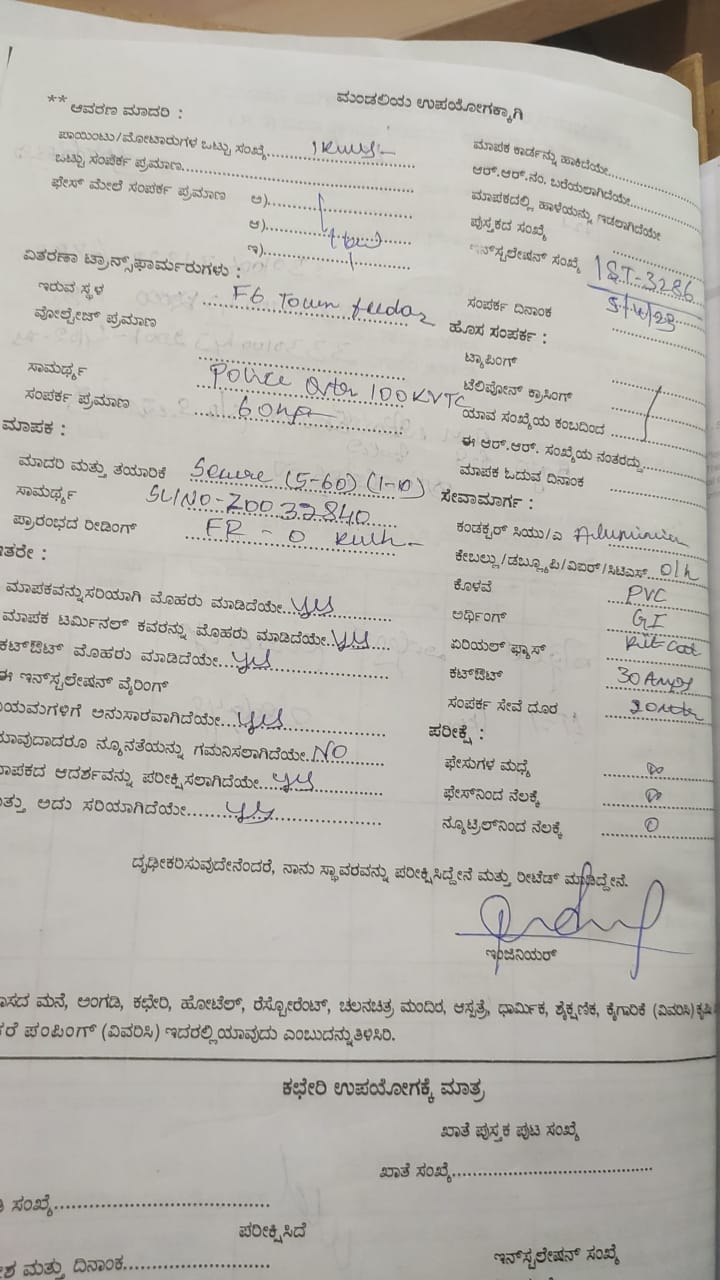 ಮಂಡಲಿಯ ಉಪಯೋಗಕ್ಕಾಗಿ
** ಆವರಣ ಮಾದರಿ :
ಪಾಯಿಂಟು/ಮೋಟಾರುಗಳ ಒಟ್ಟು ಸಂಖ್ಯೆ..........
ಒಟ್ಟು ಸಂಪರ್ಕ ಪ್ರಮಾಣ..........
ಫೇಸ್ ಮೇಲೆ ಸಂಪರ್ಕ ಪ್ರಮಾಣ ಅ)..........
ಆ)..........
ಇ)..........
ವಿತರಣಾ ಟ್ರಾನ್ಸ್‌ಫಾರ್ಮರುಗಳು :
ಇರುವ ಸ್ಥಳ F6 Town feeder
ವೋಲ್ಟೇಜ್ ಪ್ರಮಾಣ
ಸಾಮರ್ಥ್ಯ Police Qrter 100KVTC
ಸಂಪರ್ಕ ಪ್ರಮಾಣ
ಮಾಪಕ :
ಮಾದರಿ ಮತ್ತು ತಯಾರಿಕೆ Secure (5-60) (1-10)
ಸಾಮರ್ಥ್ಯ SLINO-Z0032840
ಪ್ರಾರಂಭದ ರೀಡಿಂಗ್ FR - 0 Kwh
ಇತರೇ :
ಮಾಪಕವನ್ನು ಸರಿಯಾಗಿ ಮೊಹರು ಮಾಡಿದೆಯೇ...yes
ಮಾಪಕ ಟರ್ಮಿನಲ್ ಕವರನ್ನು ಮೊಹರು ಮಾಡಿದೆಯೇ...yes
ಕಟ್‌ಔಟ್ ಮೊಹರು ಮಾಡಿದೆಯೇ...yes
ಈ ಇನ್‌ಸ್ಟಲೇಷನ್ ವೈರಿಂಗ್
ಯಮಗಳಿಗೆ ಅನುಸಾರವಾಗಿದೆಯೇ...yes
ಯಾವುದಾದರೂ ನ್ಯೂನತೆಯನ್ನು ಗಮನಿಸಲಾಗಿದೆಯೇ.NO
ಮಾಪಕದ ಆದರ್ಶವನ್ನು ಪರೀಕ್ಷಿಸಲಾಗಿದೆಯೇ...yes
ಮತ್ತು ಅದು ಸರಿಯಾಗಿದೆಯೇ..........yes
ಮಾಪಕ ಕಾರ್ಡನ್ನು ಹಾಕಿದೆಯೇ..........
ಆರ್.ಆರ್.ನಂ. ಬರೆಯಲಾಗಿದೆಯೇ..........
ಮಾಪಕದಲ್ಲಿ ಹಾಳೆಯನ್ನು ಇಡಲಾಗಿದೆಯೇ
ಪುಸ್ತಕದ ಸಂಖ್ಯೆ
ಇನ್‌ಸ್ಟಲೇಷನ್ ಸಂಖ್ಯೆ 1ST-3286
ಸಂಪರ್ಕ ದಿನಾಂಕ 5/4/23
ಹೊಸ ಸಂಪರ್ಕ :
ಟ್ಯಾಪಿಂಗ್
ಟೆಲಿಪೋನ್ ಕ್ರಾಸಿಂಗ್
ಯಾವ ಸಂಖ್ಯೆಯ ಕಂಬದಿಂದ
ಈ ಆರ್.ಆರ್. ಸಂಖ್ಯೆಯ ನಂತರದ್ದು
ಮಾಪಕ ಓದುವ ದಿನಾಂಕ
ಸೇವಾಮಾರ್ಗ :
ಕಂಡಕ್ಟರ್ ಸಿಯು/ಎ Aluminium
ಕೇಬಲ್ಲು/ಡಬ್ಲ್ಯೂಪಿ/ವಿಐರ್/ಸಿಟಿಎಸ್ O/h
ಕೊಳವೆ PVC
ಅರ್ಥಿಂಗ್ GI
ಏರಿಯಲ್ ಫ್ಯೂಸ್
ಕಟ್‌ಔಟ್ 30 Amps
ಸಂಪರ್ಕ ಸೇವೆ ದೂರ
ಪರೀಕ್ಷೆ :
ಫೇಸುಗಳ ಮಧ್ಯೆ ∞
ಫೇಸ್‌ನಿಂದ ನೆಲಕ್ಕೆ ∞
ನ್ಯೂಟ್ರಲ್‌ನಿಂದ ನೆಲಕ್ಕೆ 0
ದೃಢೀಕರಿಸುವುದೇನೆಂದರೆ, ನಾನು ಸ್ಥಾವರವನ್ನು ಪರೀಕ್ಷಿಸಿದ್ದೇನೆ ಮತ್ತು ರೀಟೆಡ್ ಮಾಡಿದ್ದೇನೆ.
ಇಂಜಿನಿಯರ್
ಾಸದ ಮನೆ, ಅಂಗಡಿ, ಕಛೇರಿ, ಹೋಟೆಲ್, ರೆಸ್ಟೋರೆಂಟ್, ಚಲನಚಿತ್ರ ಮಂದಿರ, ಆಸ್ಪತ್ರೆ, ಧಾರ್ಮಿಕ, ಶೈಕ್ಷಣಿಕ, ಕೈಗಾರಿಕೆ (ವಿವರಿಸಿ) ಕೃಷಿ
ಕರೆ ಪಂಪಿಂಗ್ (ವಿವರಿಸಿ) ಇದರಲ್ಲಿ ಯಾವುದು ಎಂಬುದನ್ನು ತಿಳಿಸಿರಿ.
ಕಛೇರಿ ಉಪಯೋಗಕ್ಕೆ ಮಾತ್ರ
ಖಾತೆ ಪುಸ್ತಕ ಪುಟ ಸಂಖ್ಯೆ
ಖಾತೆ ಸಂಖ್ಯೆ..........
ಸಂಖ್ಯೆ..........
ಪರೀಕ್ಷಿಸಿದೆ
ಇನ್‌ಸ್ಟಲೇಷನ್ ಸಂಖ್ಯೆ
ಶ ಮತ್ತು ದಿನಾಂಕ..........